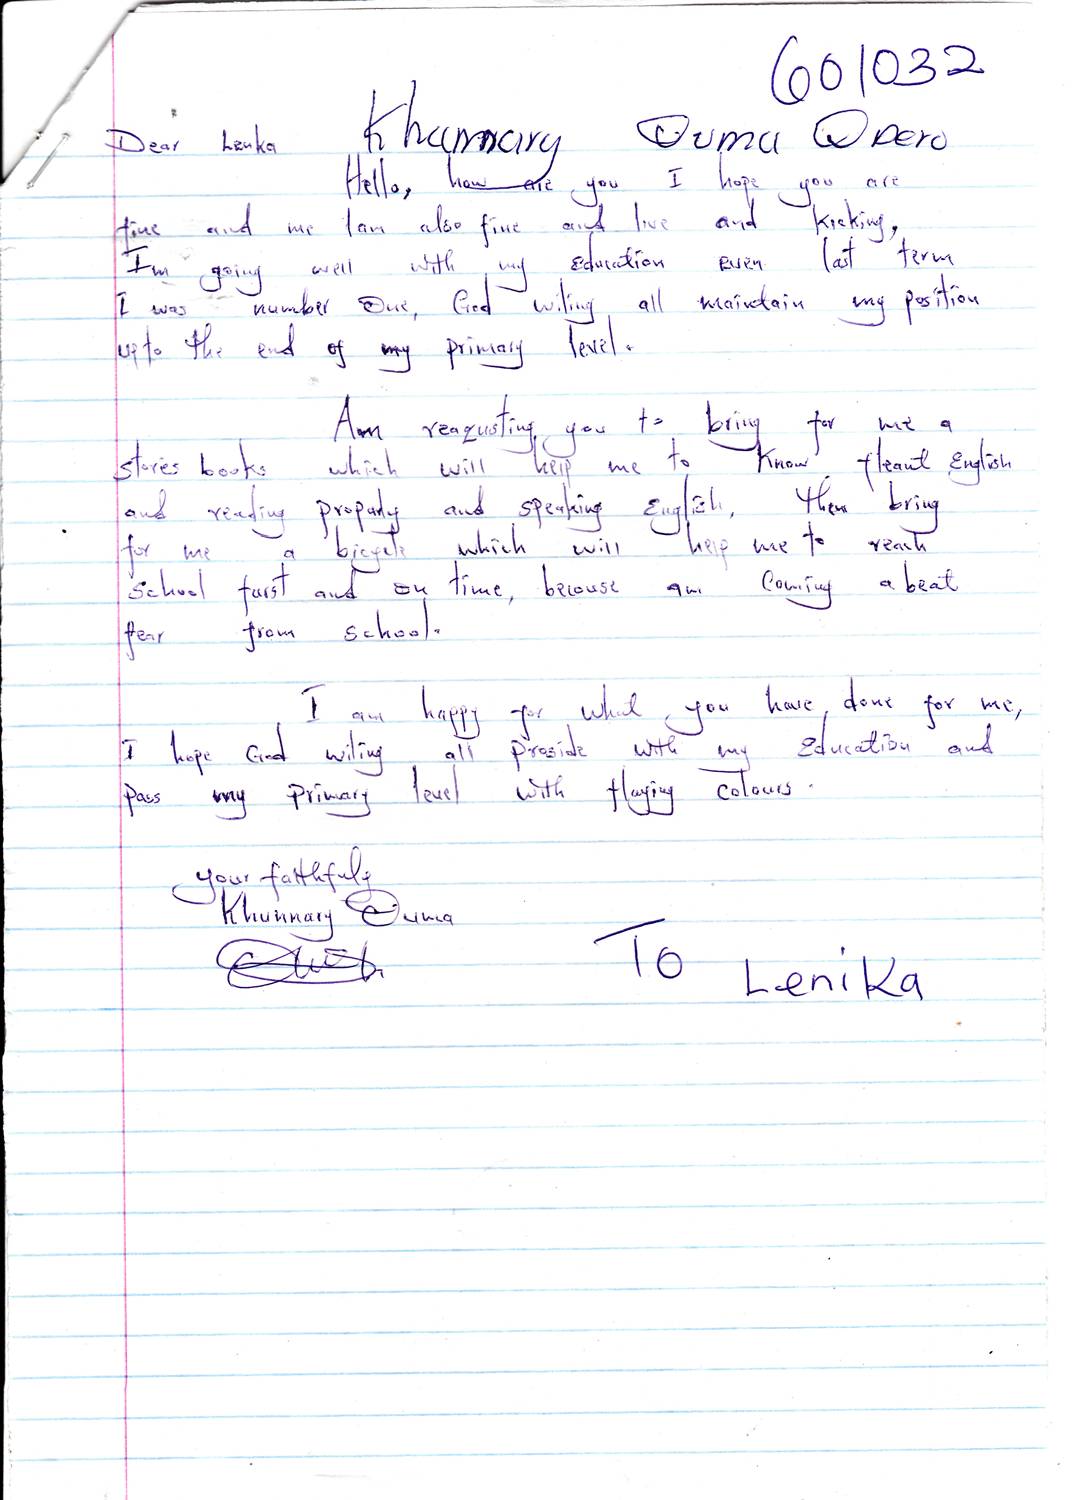 601032
Dear Lenka Khamnary Ouma Opero
Hello, how are you I hope you are
fine and me Iam also fine and live and kicking,
I'm going well with my education even last term
I was number One, God wiling all maintain my position
upto the end of my primary level.
Am reaqusting you to bring for me a
stories books which will help me to know fleant English
and reading proparly and speaking English, then bring
for me a bicycle which will help me to reach
school farst and on time, becouse am coming a beat
fear from school.
I am happy for what you have done for me,
I hope God wiling all proside with my Education and
pass my primary level with flaying colours.
your faithfuly
Khunnary Ouma
To Lenika